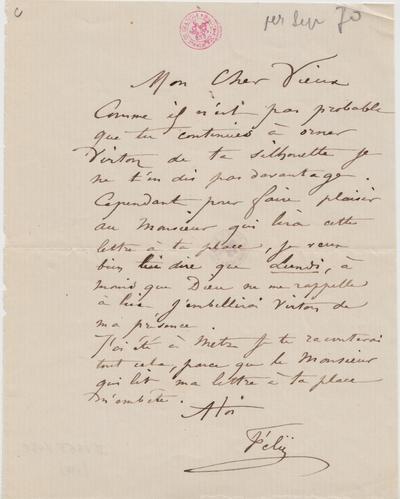 per Sept 70
Mon Cher Vieux
Comme il n'est pas probable
que tu continues à orner
Virton de ta silhouette je
ne t'en dis pas davantage.
Cependant pour faire plaisir
au Monsieur qui lira cette
lettre à ta place, je veux
bien lui dire que Lundi, à
moins que Dieu ne me rappelle
à lui j'embellirai Virton de
ma présence.
J'ai été à Metz je te raconterai
tout cela, parce que le Monsieur
qui lit ma lettre à ta place
m'embête.
A toi
Féliz